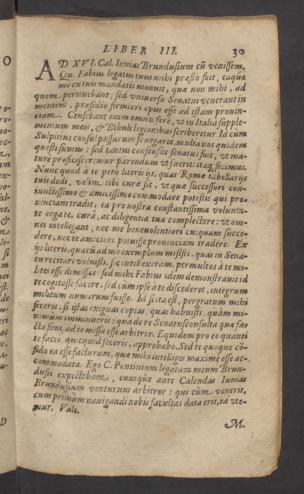 LIBER III. 30
AD XVI. Cal. Iunias Brundusium cū venissem,
Qu. Fabius legatus tuus mihi præsto fuit, eaque
me ex tuis mandatis monuit, quæ non mihi, ad
quem pertinebant, sed vniuerso Senatui venerant in
mentem, præsidio firmiori opus esse ad istam prouin-
ciam. Censebant enim omnes ferè, vt in Italia supple-
mentum meis, & Bibuli legionibus scriberetur. Id cum
Sulpitius consul passurum se negaret, multa nos quidem
questi sumus: sed tantus consensus senatus fuit, vt ma-
ture proficisceremur parendum vt fuerit: itaq; fecimus.
Nunc quod à te petij literis ijs, quas Romæ tabellarijs
tuis dedi, velim tibi curæ sit, vt quæ successori con-
iunctissimo & amicissimo commodare potest is qui pro-
uinciam tradit, ea pro nostra constantissima volunta-
te erga te, curâ, ac diligentia tua complectâre: vt om-
nes intelligant, nec me beneuolentiori cuiquam succe-
dere, nec te amiciori potuisse prouinciam tradere. Ex
ijs literis, quarū ad me exemplum misisti, quas in Sena-
tu recitari voluisti, sic intellexeram, permultos à te mi-
lites esse dimissos: sed mihi Fabius idem demonstrauit id
te cogitasse facere, sed cùm ipse à te discederet, integrum
militum numerum fuisse. Id si ita est, pergratum mihi
feceris, si istas exiguas copias, quas habuisti, quàm mi-
nimum imminueris: qua de re Senatusconsulta quæ fa-
cta sunt, ad te missa esse arbitror. Equidem pro eo quanti
te facio, quicquid feceris, approbabo. Sed te quoque cō-
fido ea esse facturum, quæ mihi intelliges maximè esse ac-
commodata. Ego C. Pontinium legatum meum Brun-
dusij expectabam, eumque ante Calendas Iunias
Brundusium venturum arbitror: qui cùm venerit,
cum primùm nauigandi nobis facultas data erit, ea vte-
mur. Vale.
M.